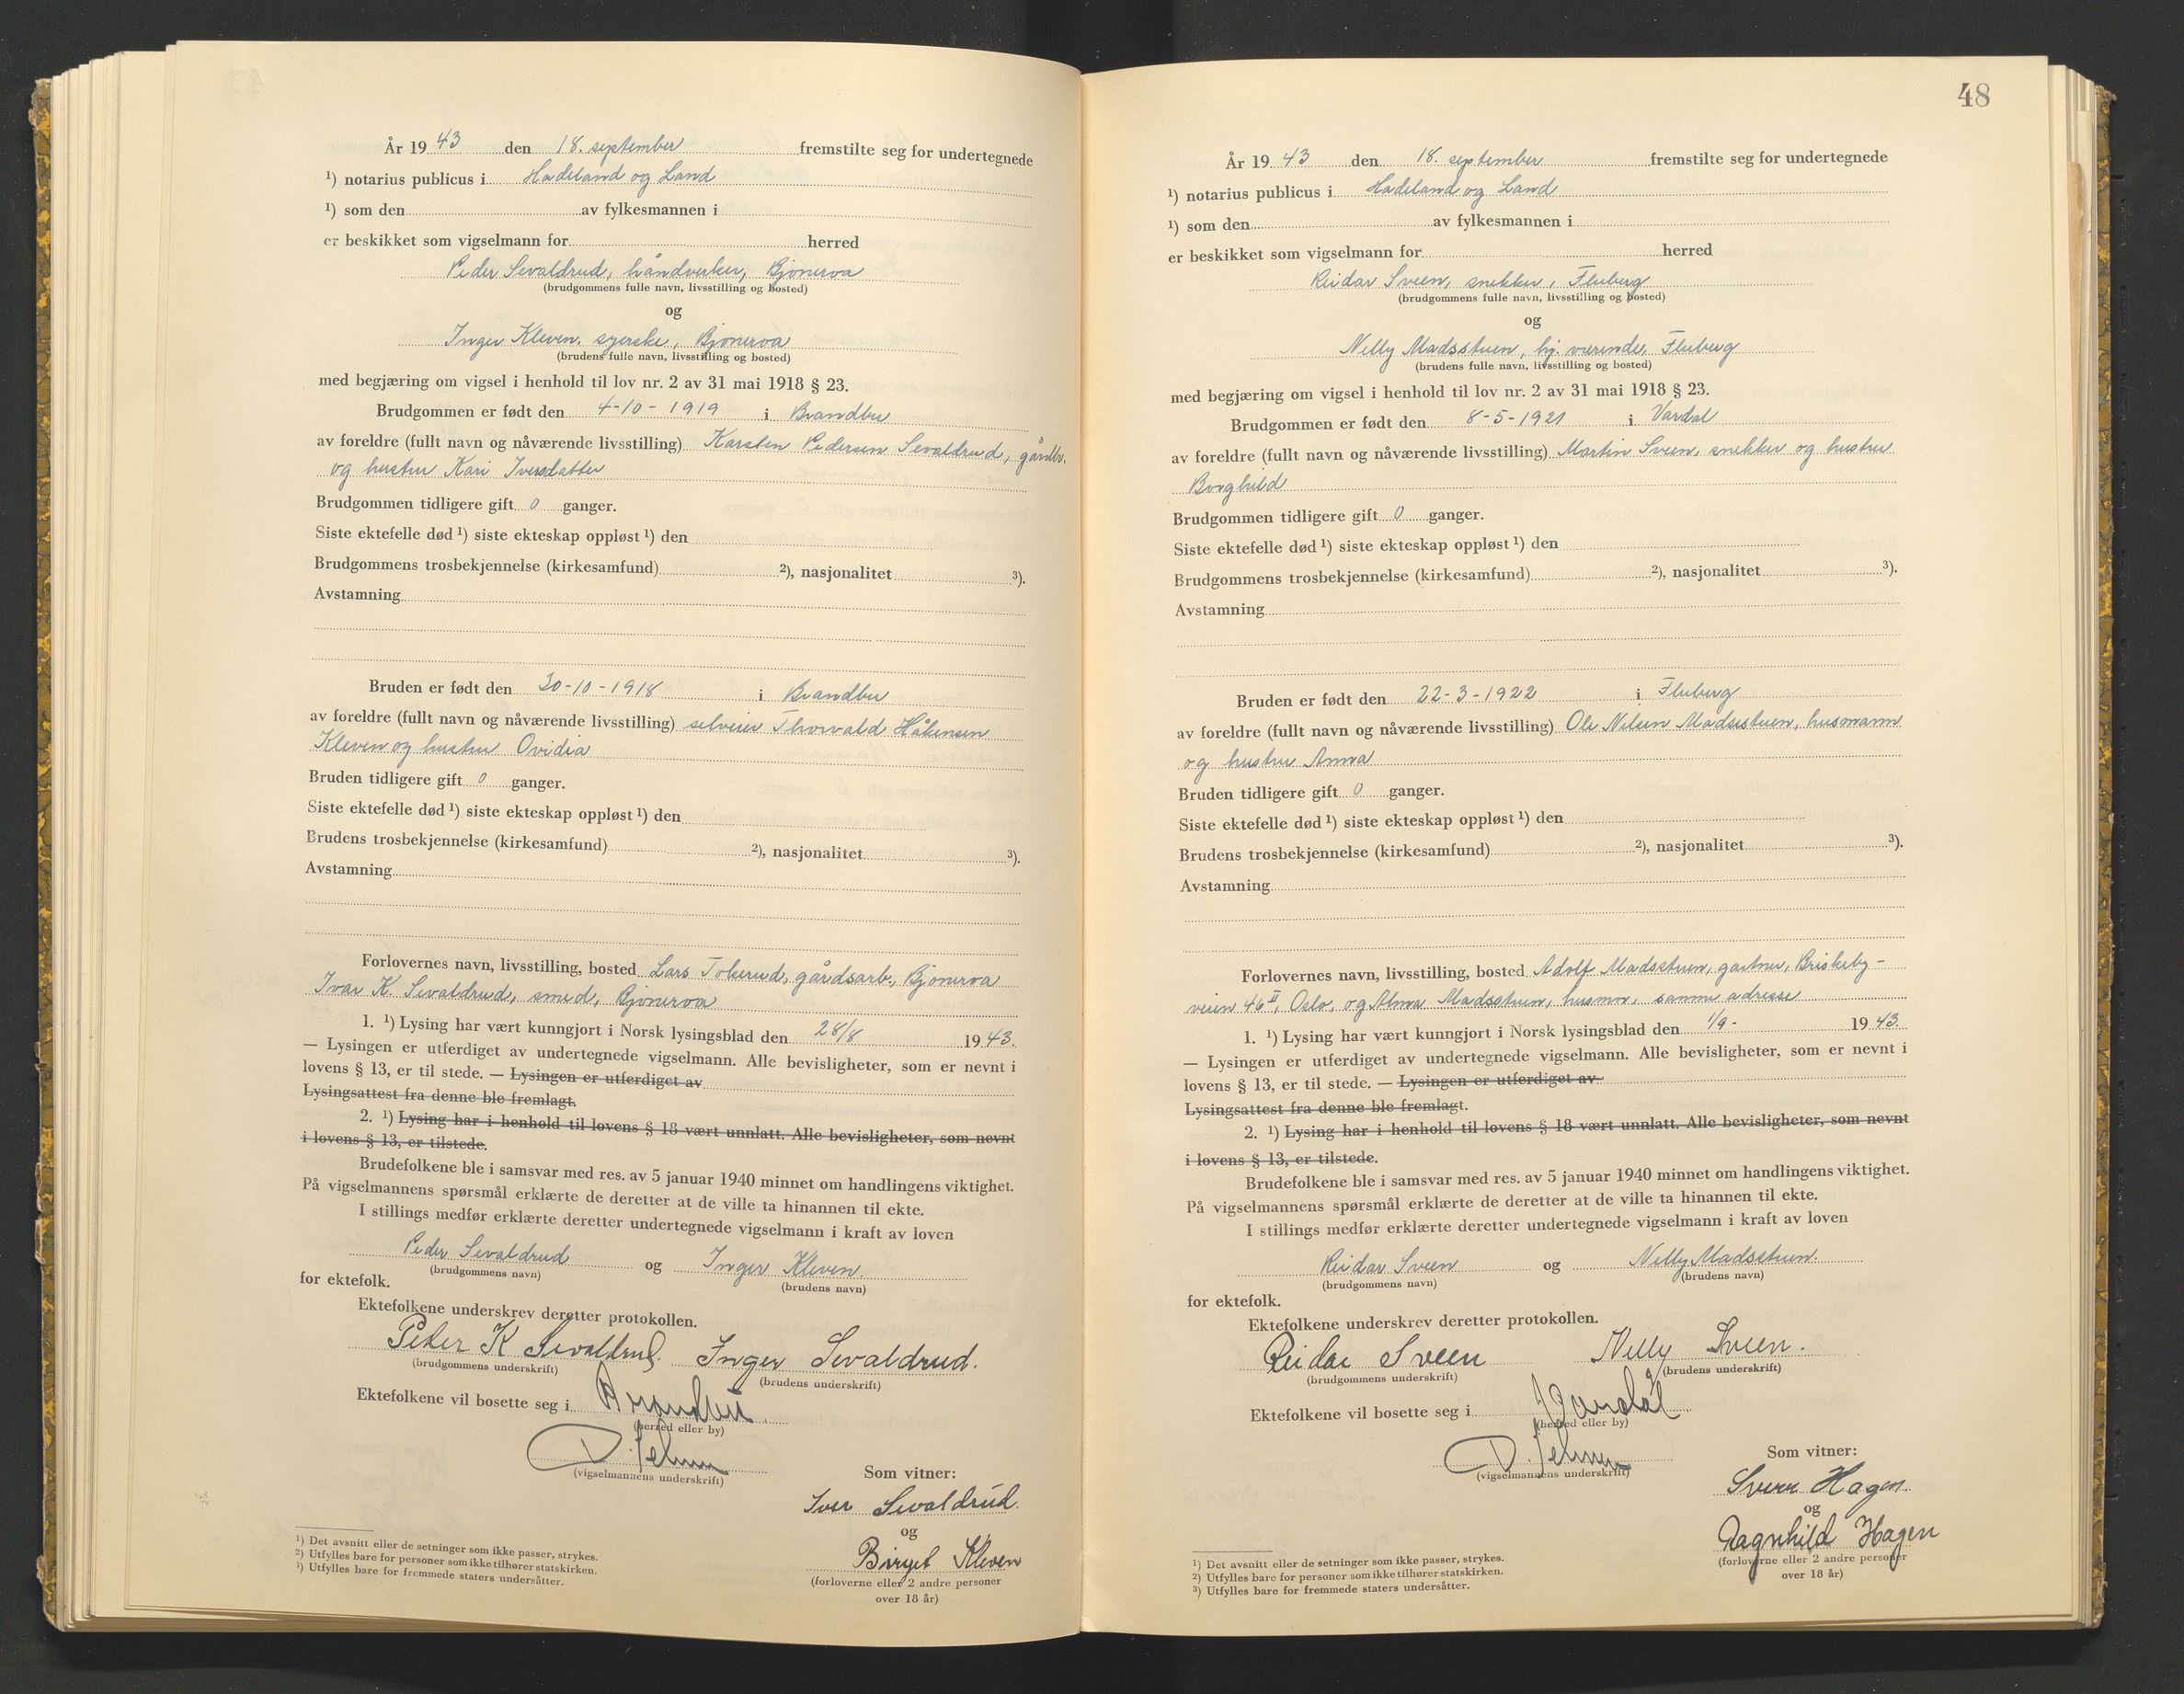 År 19 43 den 18. september fremstilte seg for undertegnede
¹) notarius publicus i Hadeland og Land
¹) som den av fylkesmannen i
er beskikket som vigselmann for herred
Peder Sevaldrud, håndverker, Bjoneroa
(brudgommens fulle navn, livsstilling og bosted)
og
Inger Kleven, syerske, Bjoneroa
(brudens fulle navn, livsstilling og bosted)
med begjæring om vigsel i henhold til lov nr. 2 av 31 mai 1918 § 23.
Brudgommen er født den 4-10-1919 i Brandbu
av foreldre (fullt navn og nåværende livsstilling) Karsten Pedersen Sevaldrud, gårdbr.
og hustru Kari Iversdatter
Brudgommen tidligere gift 0 ganger.
Siste ektefelle død ¹) siste ekteskap oppløst ¹) den
Brudgommens trosbekjennelse (kirkesamfund) ²), nasjonalitet ³).
Avstamning
Bruden er født den 30-10-1918 i Brandbu
av foreldre (fullt navn og nåværende livsstilling) selveier Thorvald Håkensen
Kleven og hustru Ovidia
Bruden tidligere gift 0 ganger.
Siste ektefelle død ¹) siste ekteskap oppløst ¹) den
Brudens trosbekjennelse (kirkesamfund) ²), nasjonalitet ³).
Avstamning
Forlovernes navn, livsstilling, bosted Lars Tokerud, gårdsarb., Bjoneroa
Ivar K. Sevaldrud, smed, Bjoneroa
1. ¹) Lysing har vært kunngjort i Norsk lysingsblad den 28/8 1943.
— Lysingen er utferdiget av undertegnede vigselmann. Alle bevisligheter, som er nevnt i
lovens § 13, er til stede. — Lysingen er utferdiget av
Lysingsattest fra denne ble fremlagt.
2. ¹) Lysing har i henhold til lovens § 18 vært unnlatt. Alle bevisligheter, som nevnt
i lovens § 13, er tilstede.
Brudefolkene ble i samsvar med res. av 5 januar 1940 minnet om handlingens viktighet.
På vigselmannens spørsmål erklærte de deretter at de ville ta hinannen til ekte.
I stillings medfør erklærte deretter undertegnede vigselmann i kraft av loven
Peder Sevaldrud og Inger Kleven.
(brudgommens navn) (brudens navn)
for ektefolk.
Ektefolkene underskrev deretter protokollen.
Peter K Sevaldrud. Inger Sevaldrud.
(brudgommens underskrift) (brudens underskrift)
Ektefolkene vil bosette seg i Brandbu.
(herred eller by)
(vigselmannens underskrift)
Som vitner:
Iver Sevaldrud.
og
Birgit Kleven
(forloverne eller 2 andre personer
over 18 år)
¹) Det avsnitt eller de setninger som ikke passer, strykes.
²) Utfylles bare for personer som ikke tilhører statskirken.
³) Utfylles bare for fremmede staters undersåtter.
48
År 19 43 den 18. september fremstilte seg for undertegnede
¹) notarius publicus i Hadeland og Land
¹) som den av fylkesmannen i
er beskikket som vigselmann for herred
Reidar Sveen, snekker, Fluberg
(brudgommens fulle navn, livsstilling og bosted)
og
Nelly Madsstuen, hj. værende, Fluberg
(brudens fulle navn, livsstilling og bosted)
med begjæring om vigsel i henhold til lov nr. 2 av 31 mai 1918 § 23.
Brudgommen er født den 8-5-1921 i Vardal
av foreldre (fullt navn og nåværende livsstilling) Martin Sveen, snekker og hustru
Borghild
Brudgommen tidligere gift 0 ganger.
Siste ektefelle død ¹) siste ekteskap oppløst ¹) den
Brudgommens trosbekjennelse (kirkesamfund) ²), nasjonalitet ³).
Avstamning
Bruden er født den 22-3-1922 i Fluberg
av foreldre (fullt navn og nåværende livsstilling) Ole Nilsen Madsstuen, husmann
og hustru Anna
Bruden tidligere gift 0 ganger.
Siste ektefelle død ¹) siste ekteskap oppløst ¹) den
Brudens trosbekjennelse (kirkesamfund) ²), nasjonalitet ³).
Avstamning
Forlovernes navn, livsstilling, bosted Adolf Madsstuen, gartner, Briskeby-
veien 46 II, Oslo, og Alma Madsstuen, husmor, samme adresse
1. ¹) Lysing har vært kunngjort i Norsk lysingsblad den 1/9- 1943.
— Lysingen er utferdiget av undertegnede vigselmann. Alle bevisligheter, som er nevnt i
lovens § 13, er til stede. — Lysingen er utferdiget av
Lysingsattest fra denne ble fremlagt.
2. ¹) Lysing har i henhold til lovens § 18 vært unnlatt. Alle bevisligheter, som nevnt
i lovens § 13, er tilstede.
Brudefolkene ble i samsvar med res. av 5 januar 1940 minnet om handlingens viktighet.
På vigselmannens spørsmål erklærte de deretter at de ville ta hinannen til ekte.
I stillings medfør erklærte deretter undertegnede vigselmann i kraft av loven
Reidar Sveen og Nelly Madsstuen.
(brudgommens navn) (brudens navn)
for ektefolk.
Ektefolkene underskrev deretter protokollen.
Reidar Sveen Nelly Sveen.
(brudgommens underskrift) (brudens underskrift)
Ektefolkene vil bosette seg i Vardal
(herred eller by)
(vigselmannens underskrift)
Som vitner:
Sverre Hagen.
og
Ragnhild Hagen
(forloverne eller 2 andre personer
over 18 år)
¹) Det avsnitt eller de setninger som ikke passer, strykes.
²) Utfylles bare for personer som ikke tilhører statskirken.
³) Utfylles bare for fremmede staters undersåtter.